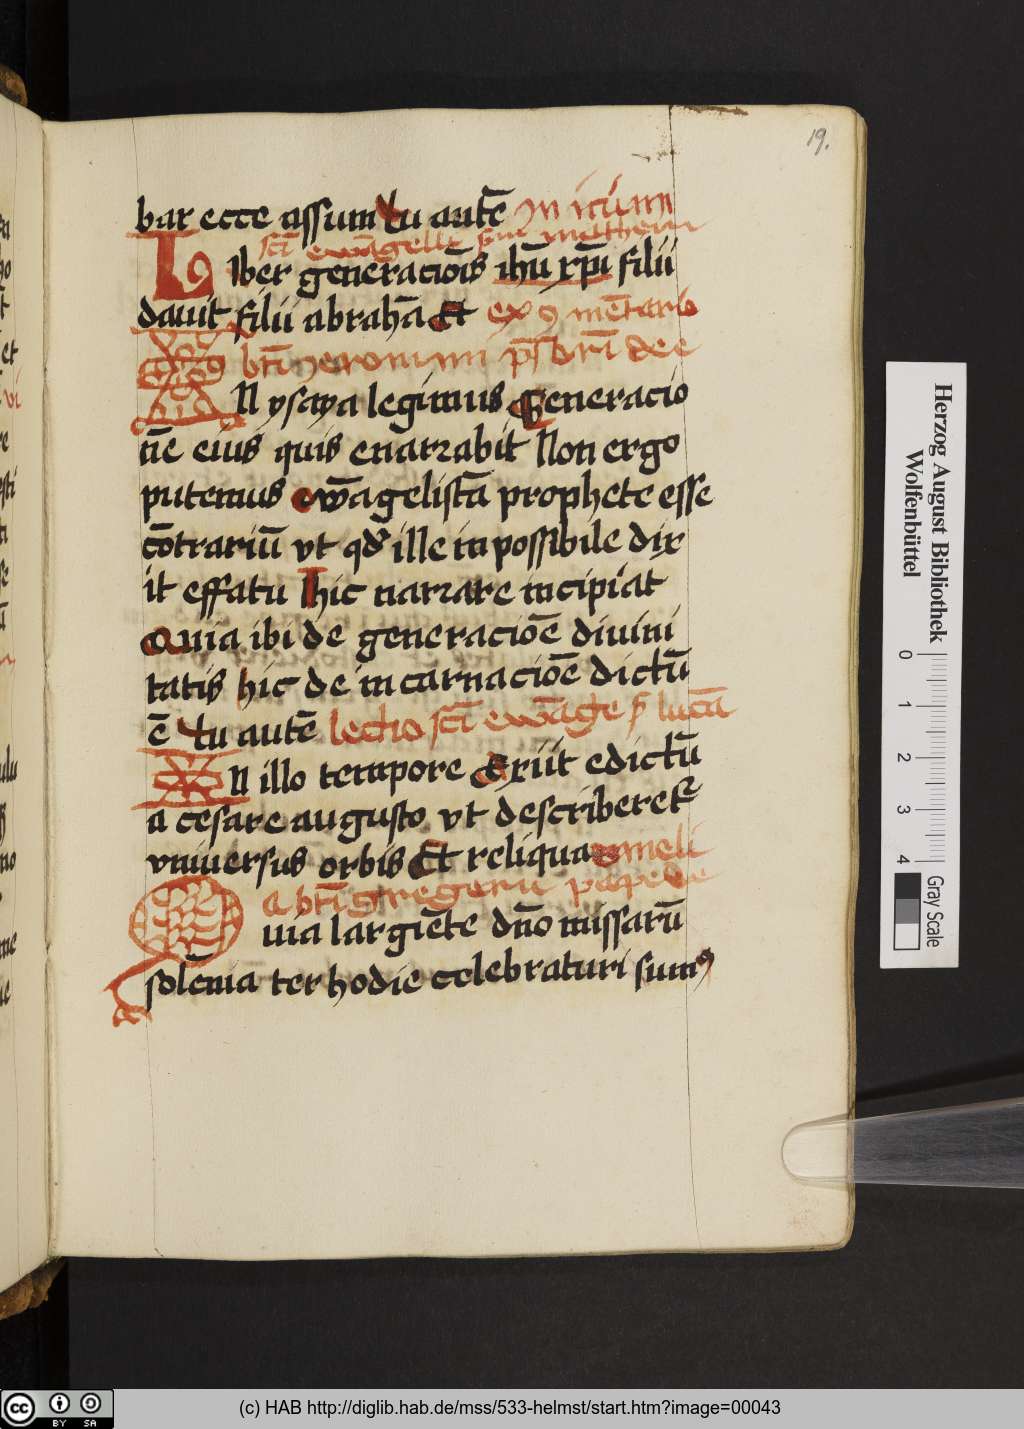 19.
bar ecce assum tu autē In iniciuм
scī ewāgelii sm̄ matheū
Liber generaciōis ihū xp̄i filii
dauit filii abrahā Et ex 9 mētario
btī Ieronimi p̄sbrī de e
IN ysaya legimus Generacio
nē eius quis enarrabit Non ergo
putemus ewāgelistā prophete esse
cōtrariū vt qd̓ ille inpossibile dix
it effatu hic narrare incipiat
Quia ibi de generaciōe diuini
tatis hic de incarnaciōe dictū
ē tu autē lectio scī ewāge s̄ lucā
IN illo tempore Exiit edictū
a cesare augusto vt describeret᷑
vniuersus orbis Et reliqua omeli
a btī gregorii pape de e
Quia largiēte dn̄o missarū
solēnia ter hodie celebraturi sum9
Herzog August Bibliothek
Wolfenbüttel
0 1 2 3 4
Gray Scale
BY SA
(c) HAB http://diglib.hab.de/mss/533-helmst/start.htm?image=00043